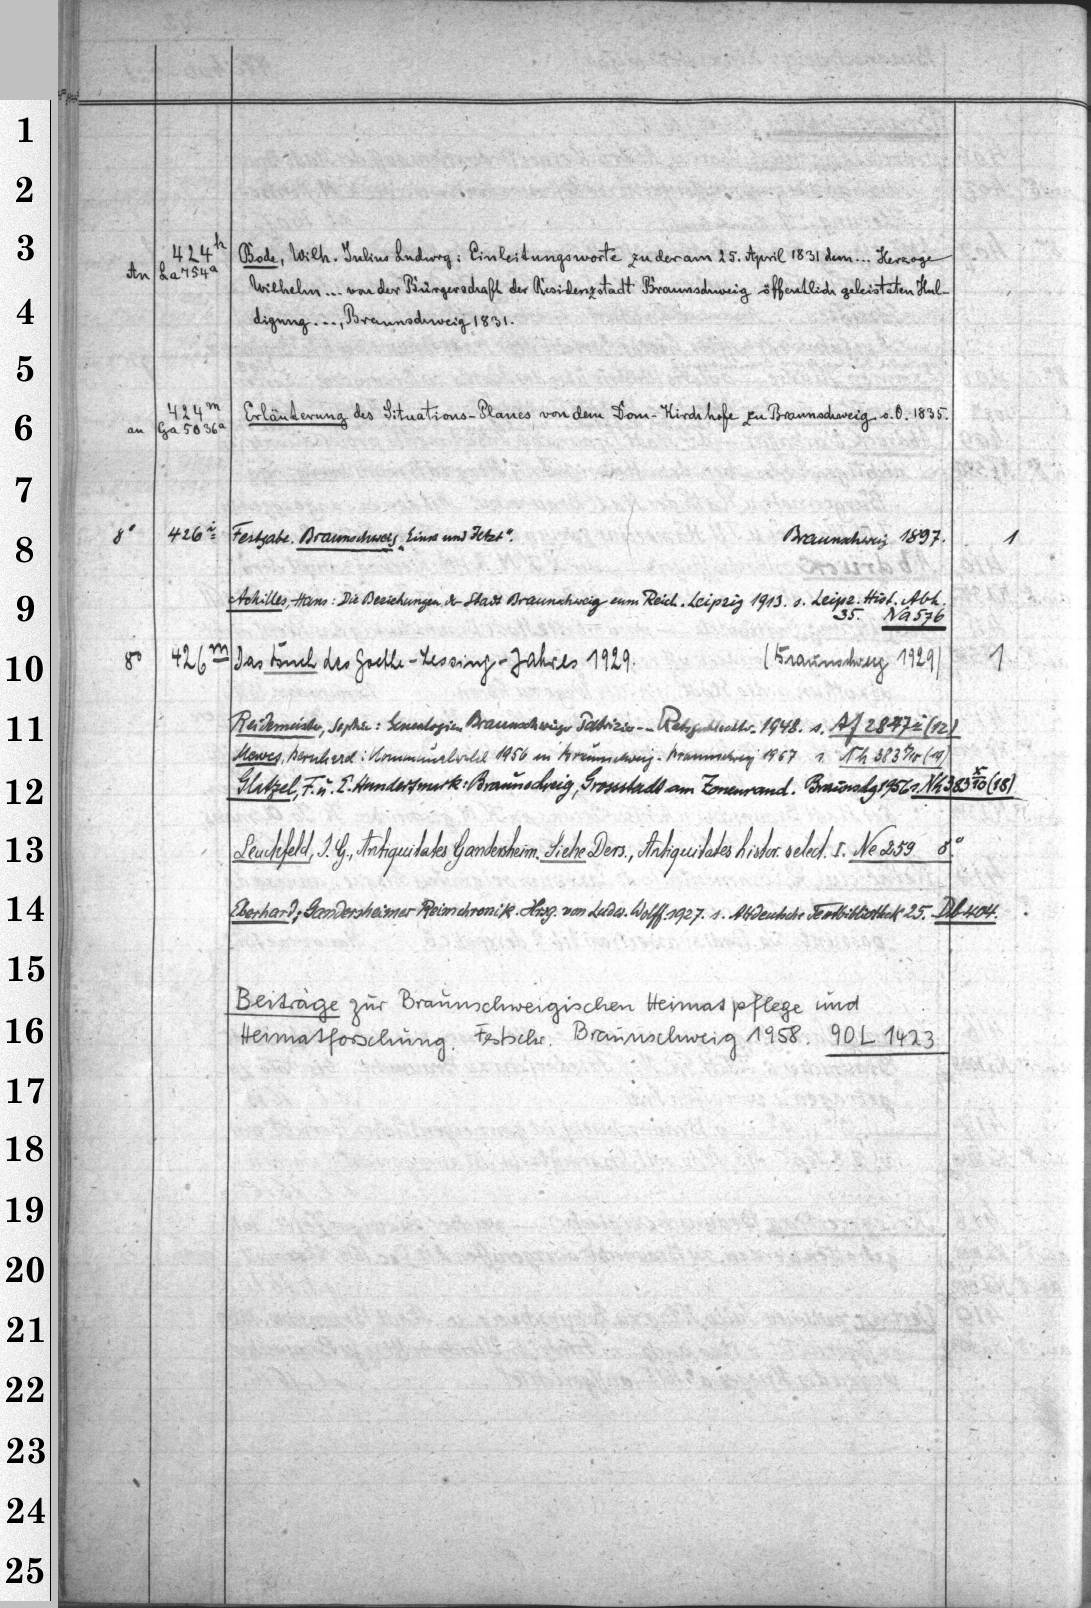 1
2
3
424h Bode, Wilh. Julius Ludwig: Einleitungsworte zu der am 25. April 1831 dem... Herzoge
An La 754a
Wilhelm... von der Bürgerschaft der Residenzstadt Braunschweig öffentlich geleisteten Hul-
4
digung..., Braunschweig 1831.
5
424m Erläuterung des Situations-Planes von dem Dom-Kirchhofe zu Braunschweig. o. O. 1835.
6
an Ga 5036a
7
8° 426i Festgabe. Braunschweig „Einst und Jetzt“. Braunschweig 1897. 1
8
Achilles, Hans: Die Beziehungen der Stadt Braunschweig zum Reich. Leipzig 1913. s. Leipz. Hist. Abh.
9
35. Na 576
8° 426m Das Buch des Goethe-Lessing-Jahres 1929. (Braunschweig 1929) 1
10
11
Reidemeister, Sophie: Genealogien Braunschweiger Patrizier- u. Ratsgeschlechter. 1948. s. Af 2847i (12)
Mewes, Bernhard: Braunschweig. Braunschweig 1967 s.
12
Glatzel, F. u. E. Hundertmark: Braunschweig, Grossstadt am Zonenrand. Braunschg 1956 s. Nh 383 x/10 (18)
13
Leuckfeld, J. G., Antiquitates Gandersheim. Siehe Ders., Antiquitates histor. select. I. Ne 259 8°
14
Eberhard, Gandersheimer Reimchronik. Hrsg. von Ludw. Wolff. 1927. s. Altdeutsche Textbibliothek 25. Db 404.
15
Beiträge zur Braunschweigischen Heimatpflege und
16
Heimatforschung. Festschr. Braunschweig 1958. 90 L 1423
17
18
19
20
21
22
23
24
25